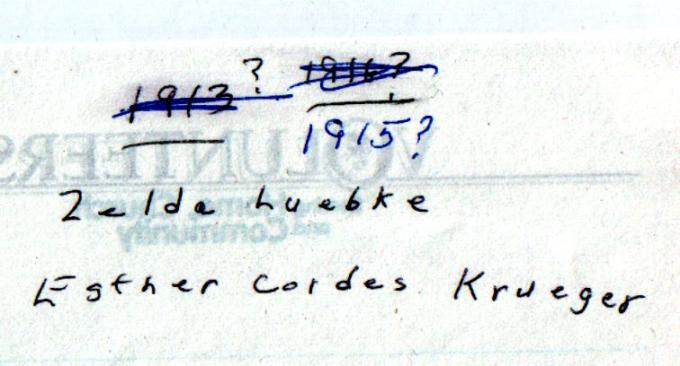 1913 ? 1916?
1915?
VOLUNTEERS
Home, Church
and Community
Zelda Luebke
Esther Cordes Krueger